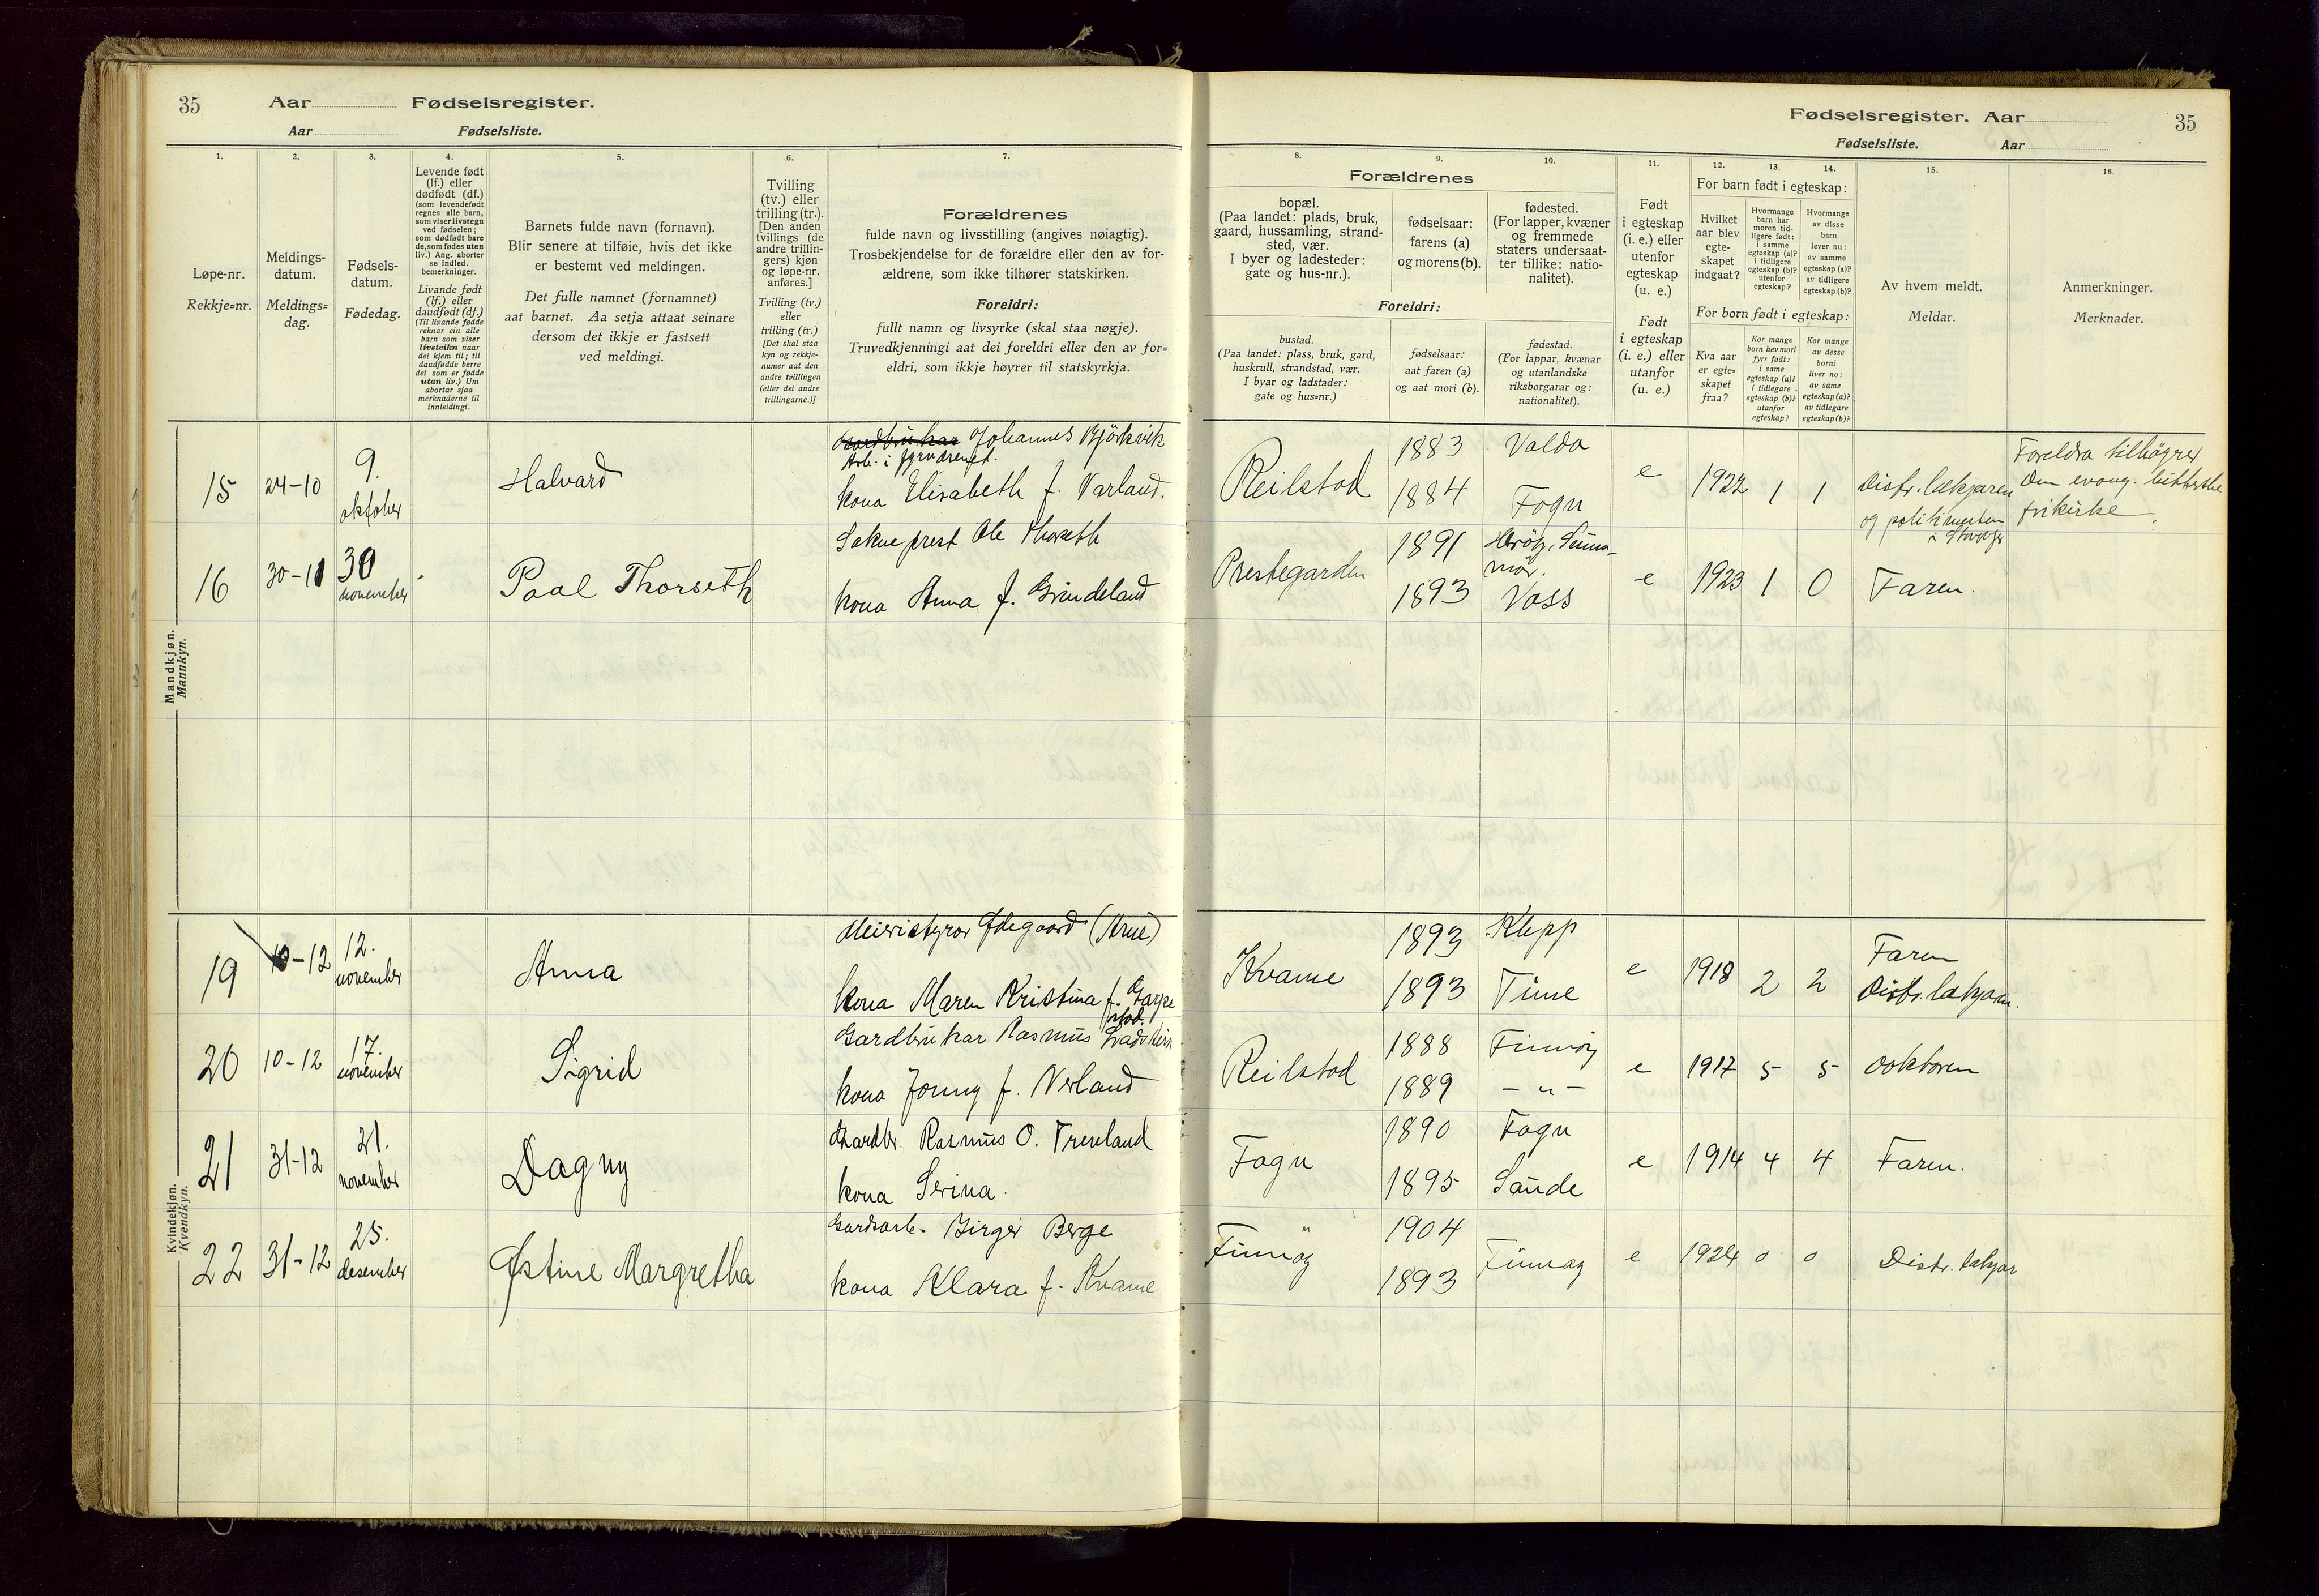 35 Aar Fødselsregister.
Aar Fødselsliste.
1. 2. 3. 4. 5. 6. 7.
Løpe-nr.
Rekkje=nr.
Meldings-
datum.
Meldings=
dag.
Fødsels-
datum.
Fødedag.
Levende født
(lf.) eller
dødfødt (df.)
(som levendefødt
regnes alle barn,
som viser livstegn
ved fødselen;
som dødfødt bare
de, som fødes uten
liv.) Ang. aborter
se indled.
bemerkninger.
Livande født
(lf.) eller
daudfødt (df.)
(Til livande fødde
reknar ein alle
barn som viser
livsteikn naar
dei kjem til; til
daudfødde berre
dei som er fødde
utan liv.) Um
abortar sjaa
merknaderne til
innleidingi.
Barnets fulde navn (fornavn).
Blir senere at tilføie, hvis det ikke
er bestemt ved meldingen.
Det fulle namnet (fornamnet)
aat barnet. Aa setja attaat seinare
dersom det ikkje er fastsett
ved meldingi.
Tvilling
(tv.) eller
trilling (tr.).
[Den anden
tvillings (de
andre trillin-
gers) kjøn
og løpe-nr.
anføres.]
Tvilling (tv.)
eller
trilling (tr.)
[Det skal staa
kyn og rekkje-
numer aat den
andre tvillingen
(eller dei andre
trillingarne.)]
Forældrenes
fulde navn og livsstilling (angives nøiagtig).
Trosbekjendelse for de forældre eller den av for-
ældrene, som ikke tilhører statskirken.
Foreldri:
fullt namn og livsyrke (skal staa nøgje).
Truvedkjenningi aat dei foreldri eller den av for=
eldri, som ikkje høyrer til statskyrkja.
Mandkjøn.
Mannkyn.
15 24-10 9. oktober Halvard
Gardbrukar Johannes Bjørkvik
Arb. i
kona Elisabeth f. Varland.
16 30-11 30 november Paal Thorseth
Sokneprest Ole Thorseth
kona Anna f. Grindeland
Kvindekjøn.
Kvendkyn.
19 10-12 12. november Anna
Meieristyrar Ødegaard (Arne)
kona Maren Kristina f. Garpe
stad.
20 10-12 17. november Sigrid
Gardbrukar Rasmus
kona Jonny f. Verland
21 31-12 21. november Dagny
Gardbr. Rasmus O.
kona Serina.
22 31-12 25. desember Østine Margretha
Gardsarb. Birger Berge
kona Klara f. Kvame
Fødselsregister. Aar 35
Fødselsliste. Aar
8. 9. 10. 11. 12. 13. 14. 15. 16.
Forældrenes
bopæl.
(Paa landet: plads, bruk,
gaard, hussamling, strand-
sted, vær.
I byer og ladesteder:
gate og hus-nr.).
fødselsaar:
farens (a)
og morens (b).
fødested.
(For lapper, kvæner
og fremmede
staters undersaat-
ter tillike: natio-
nalitet).
Foreldri:
bustad.
(Paa landet: plass, bruk, gard,
huskrull, strandstad, vær.
I byar og ladstader:
gate og hus=nr.)
fødselsaar:
aat faren (a)
og aat mori (b).
fødestad.
(For lappar, kvænar
og utanlandske
riksborgarar og:
nationalitet).
Født
i egteskap
(i. e.) eller
utenfor
egteskap
(u. e.)
Født
i egteskap
(i. e.) eller
utanfor
(u. e.)
For barn født i egteskap:
Hvilket
aar blev
egte-
skapet
indgaat?
Hvormange
barn har
moren tid-
ligere født:
i samme
egteskap (a)?
i tidligere
egteskap (b)?
utenfor
egteskap?
Hvormange
av disse
barn
lever nu:
av samme
egteskap (a)?
av tidligere
egteskap (b)?
For born født i egteskap:
Kva aar
er egte=
skapet
fraa?
Kor mange
born hev mori
fyrr født:
i same
egteskap (a)?
i tidlegare
egteskap (b)?
utanfor
egteskap?
Kor mange
av desse
borni
liver no:
av same
egteskap (a)?
av tidlegare
egteskap (b)?
Av hvem meldt.
Meldar.
Anmerkninger.
Merknader.
Reilstad 1883 Valda
1884 Fogn
e 1922 1 1 Distr. lækjaren
og politimesteren
i Stavanger
Foreldra tilhøyrer
Den evang. lutherske
frikirke.
Prestegarden 1891 Herøy, Sunn-
mør.
1893 Voss
e 1923 1 0 Faren.
Kvame 1893 Klepp
1893 Time
e 1918 2 2 Faren
Distr. lækjaren.
Reilstad 1888 Finnøy
1889 – " –
e 1917 5 5 doktoren
Fogn 1890 Fogn
1895 Saude
e 1914 4 4 Faren.
Finnøy " 1904
1893 Finnøy
e 1924 0 0 Distr. lækjar